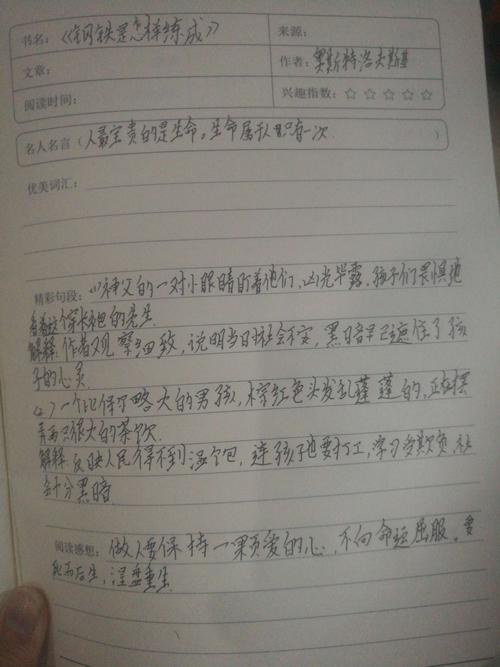 书名：《钢铁是怎样练成》
来源：
文章：
作者：奥斯特洛夫斯基
阅读时间：
兴趣指数：☆ ☆ ☆ ☆ ☆
名人名言（人最宝贵的是生命，生命属于人只有一次 ）
优美词汇：
精彩句段：(1)神父的一对小眼睛盯着他们，凶光毕露，孩子们畏惧地
看着这个穿长袍的先生
解释：作者观察细致，说明当日社会不安，黑暗早已遮住了孩
子的心灵
(2)一个比保尔略大的男孩，棕红色头发乱蓬蓬的，正在摆
弄两只很大的茶炊
解释：反映人民得不到温饱，连孩子也要打工，
会十分黑暗
阅读感想：做人要保持一颗爱的心，不向命运屈服。要
死而后生，涅盘重生